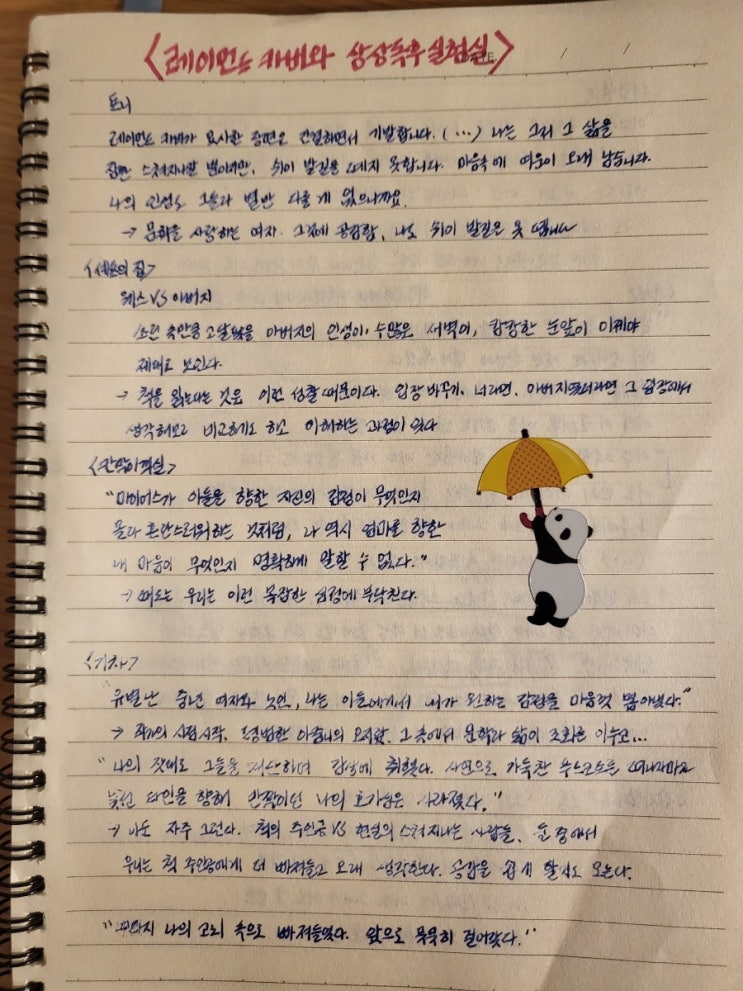 <레이먼드 카버와 상상독후실험실>
토니
레이먼드 카버가 묘사한 장면은 간결하면서 기발합니다. (...) 나는 그저 그 삶을
잠깐 스쳐지나갈 뿐이지만, 쉬이 발길을 떼지 못합니다. 마음속에 여운이 오래 남습니다.
나의 인생도 그들과 별반 다를 게 없으니까요.
→ 문학을 사랑하는 여자. 그것에 공감함, 나도 쉬이 발길은 못 뗍니다
<셰프의 집>
웨스 VS 아버지
쓰린 속만큼 고달팠을 아버지의 인생이, 수많은 새벽이, 캄캄한 눈앞이 이제야
제대로 보인다.
→ 책을 읽는다는 것은 이런 성찰 때문이다. 입장 바꾸기. 너라면, 아버지였더라면 그 입장에서
생각해보고 비교하기도 하고 이해하는 과정이 있다
<칸막이객실>
"마이어스가 아들을 향한 자신의 감정이 무엇인지
몰라 혼란스러워하는 것처럼, 나 역시 엄마를 향한
내 마음이 무엇인지 명확하게 말할 수 없다."
→ 때로는 우리는 이런 복잡한 심정에 부닥친다.
<기차>
"유별난 중년 여자와 노인, 나는 이들에게서 내가 원하는 감정을 마음껏 뽑아냈다."
→ 작가의 시점 시작. 평범한 아줌니의 오지랖. 그 속에서 문학과 삶이 조화를 이루고...
"나의 잣대로 그들을 재단하며 감상에 취했다. 사연으로 가득한 누스코트를 떠나자마자
낯선 타인을 향해 반짝이던 나의 호기심은 사라졌다."
→ 나는 자주 그런다. 책의 주인공 VS 현실의 스쳐지나는 사람들, 둘 중에서
우리는 책 주인공에게 더 빠져들고 오래 생각한다. 공감을 쉽게 할지도 모른다.
나의 고리 속으로 빠져들었다. 앞으로 묵묵히 걸어갔다."